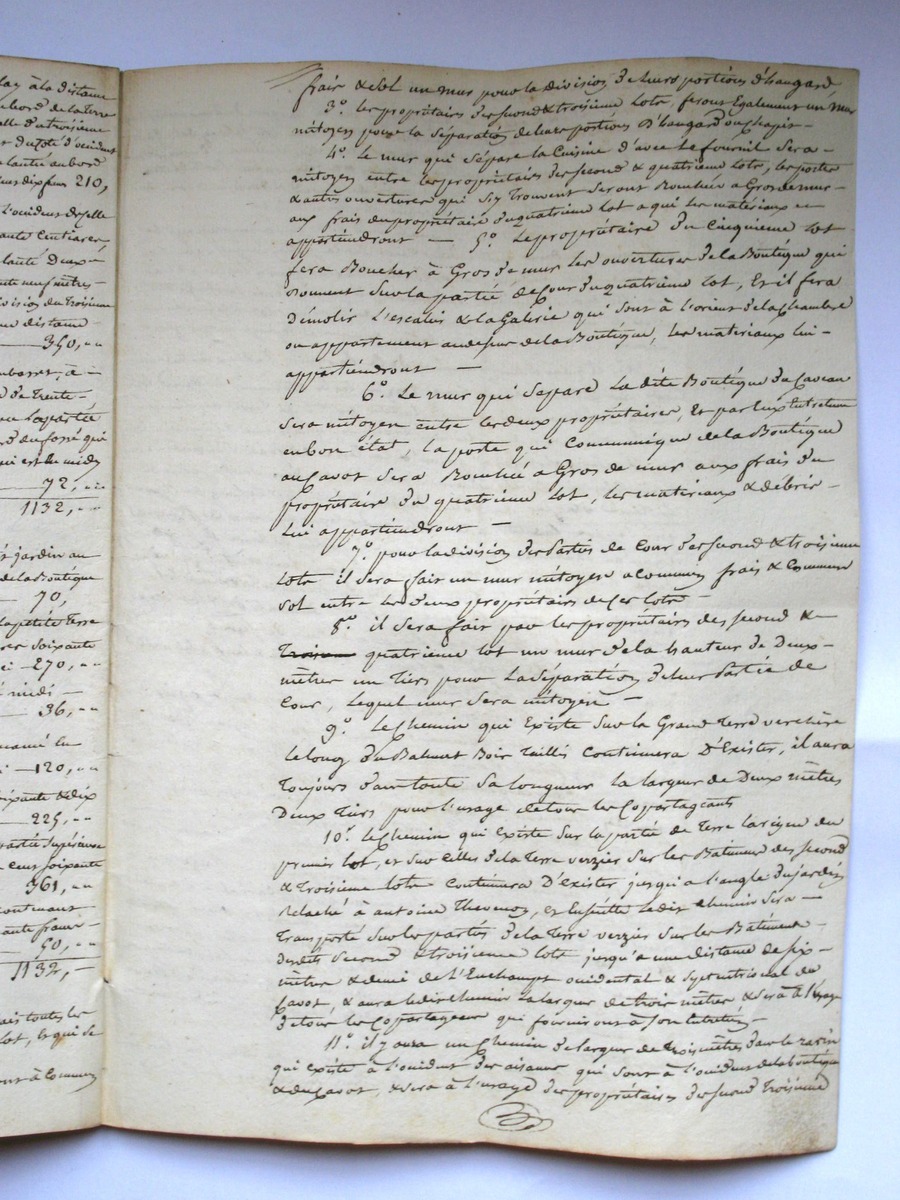 lay à la distance
bord de la Terre
elle du troisieme
du Coté d'occident
210,
L'occident de celle
ante Centiares,
lante Deux =
te neuf mètres -
ivision du Troisieme
me distance -
350, " "
de Trente -
la partie
rd du fossé qui
ui est le midy
72, " "
1132, " "
jardin au
de la Boutique
70,
la petite Terre
res soixante
270, " "
midi -
36, " "
120, " "
oixante & dix
225, " "
partie Supérieure
Cent soixante
361, " "
contenant
ante francs -
50, " "
1132, -
ais toutes les
Lot, & qui se
ont à Commun
frais & sol un mur pour la division de leurs portions d'hangard
3° les propriétaires des second & troisième lots, feront Egalement un mur
mitoyen pour la Séparation de leurs portions D'hangard ou chapit -
4° Le mur qui Sépare la Cuisine d'avec Le fournil Sera -
mitoyen entre les propriétaires des Second & quatrieme lots, les portes
& autres ouvertures qui S'y Trouvent Seront Bouchée a Gros de mur -
aux frais du propriétaire du quatrieme Lot a qui les matériaux en
appartiendront — 5° Le propriétaire du Cinquieme lot
fera Boucher à Gros de mur les ouvertures de la Boutique qui
Donnent Sur la partie de Cour du quatrieme lot, Et il fera
Démolir L'escalier & la Galerie qui Sont à l'orient de la Chambre
ou appartement audessus de la Boutique, les matériaux lui -
appartiendront —
6° Le mur qui Sépare La dite Boutique du Caveau
Sera mitoyen entre les deux propriétaires, Et par Eux Entretenu
en bon état, la porte qui Communique de la Boutique
au Cavot Sera Bouchée a Gros de mur aux frais du
propriétaire du quatrieme lot, les matériaux & débris -
Lui appartiendront —
7° pour la division des Parties de Cour des second & troisieme
lots il Sera fait un mur mitoyen a Communs frais & Commun
Sol entre les deux propriétaires de Ces lots -
8° il Sera fait par les propriétaires des second & -
Troisieme quatrieme lot un mur de la hauteur de Deux -
mètres un Tiers pour La Séparation de leur Partie de
Cour, Lequel mur Sera mitoyen —
9° Le Chemin qui Existe Sur la Grand Terre verchère
le long du Batiment Bois Taillis Continuera D'Exister, il aura
Toujours dans toute Sa longueur la largeur de Deux mètres
Deux Tiers pour l'usage de tous les Copartageants
10° le Chemin qui existe Sur la partie de Terre la vigne du
premier lot, et Sur Celles de la Terre verzier Sur les Batiments des second
& Troisieme lots Continuera D'exister jusqu'a l'angle du jardin
Relaché à antoine Thevenon, et Ensuitte ledit Chemin Sera —
Transporté Sur les parties de la Terre verzier Sur les Bâtiments
desdits Second & troisieme lots jusqu'a une distance de six -
mètres & demi de L'Enchampt occidental & Septentrional du
Cavot, & aura ledit Chemin La largeur de trois mètres & Sera à l'usage
de tous les Copartageans qui fourniront à Son Entretien -
11° il y aura un Chemin de largeur de Trois mètres dans le ravin
qui existe à l'occident des aisances qui Sont à l'occident de la boutique
& du Cavot, & Sera à l'usage des propriétaires des second Troisieme